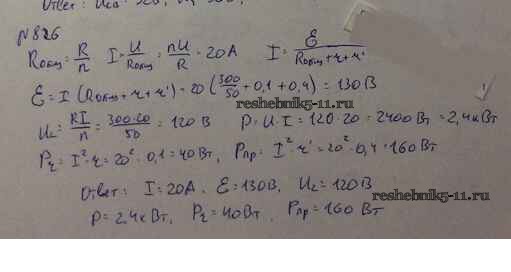 Ответ:
№826
Rобщ = R/n I = U/Rобщ = nU/R = 20А I = ℰ/(Rобщ + r + r')
ℰ = I (Rобщ + r + r') = 20 (300/50 + 0,1 + 0,4) = 130 В
reshebnik5-11.ru
U₂ = RI/n = 300·20/50 = 120 В P = U·I = 120·20 = 2400 Вт = 2,4кВт
P₂ = I²·r = 20²·0,1 = 40Вт, Pпр = I²·r' = 20²·0,4 = 160Вт
Ответ: I = 20А. ℰ = 130В, U₂ = 120В
reshebnik5-11.ru
P = 2,4кВт, P₂ = 40Вт, Pпр = 160 Вт